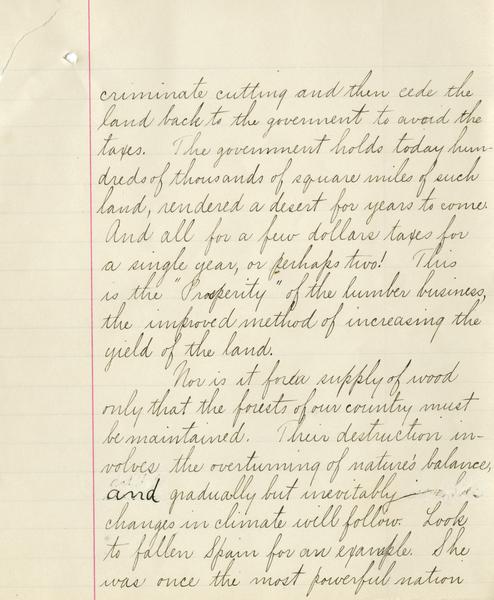 criminate cutting and then cede the
land back to the goverment to avoid the
taxes. The government holds today hun-
dreds of thousands of square miles of such
land, rendered a desert for years to come.
And all for a few dollars taxes for
a single year, or perhaps two! This
is the "Prosperity" of the lumber business,
the improved method of increasing the
yield of the land.
Nor is it for a supply of wood
only that the forests of our country must
be maintained. Their destruction in-
volves the overturning of nature's balance,
and gradually but inevitably
changes in climate will follow. Look
to fallen Spain for an example. She
was once the most powerful nation